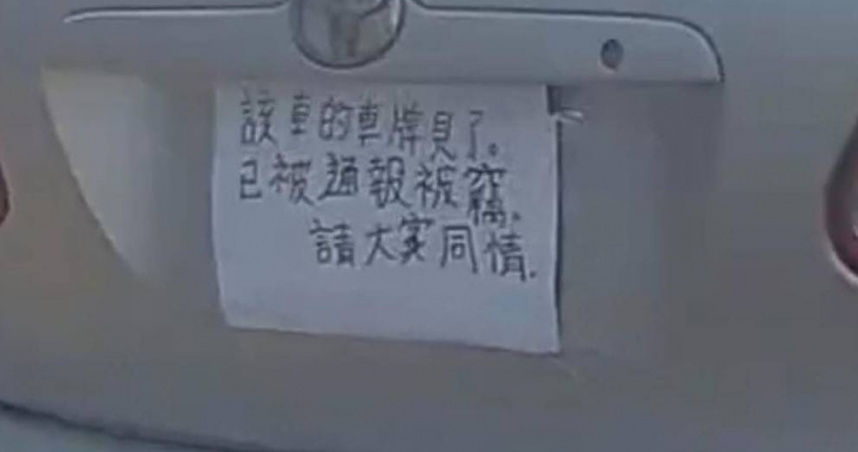 該車的車牌見了。
已被通報被竊.
請大家同情.